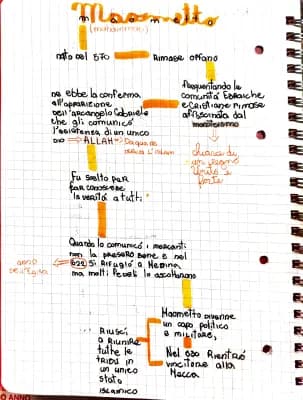 Maometto
nato nel 570
Rimase orfano
Frequentando le
comunità Ebraiche
e Cristiane rimase
affascinato dal
monoteismo
ne ebbe la conferma
all'apparizione
dell'arcangelo Gabriele
che gli comunicò
l'esistenza di un unico
DIO → ALLAH →
Fu scelto per
far conoscere
"la verità a tutti"
Quando lo comunicò i mercanti
non la presero bene e nel
622 si rifugiò a Medina
ma molti fedeli lo ascoltarono
anno
dell'Egira
Maometto divenne
un capo politico
e militare,
Riuscì
a riunire
tutte le
tribù in
un unico
stato
islamico
Nel 630 Rientrò
vincitore alla
Mecca